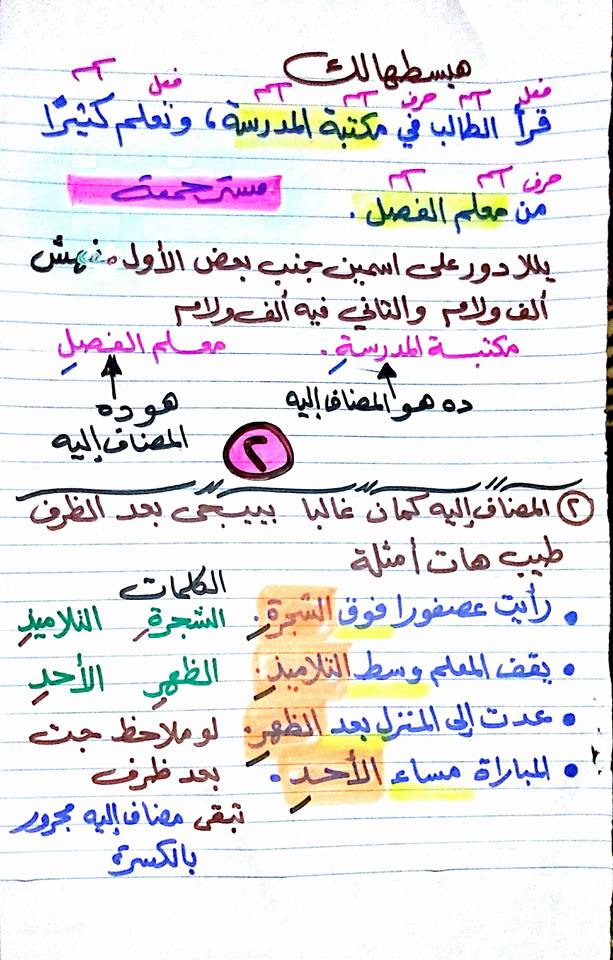 هبسطهالك
فعل اسم حرف اسم اسم فعل اسم
قرأ الطالب في مكتبة المدرسة، وتعلم كثيرًا
حرف اسم اسم
من معلم الفصل. مستر جمعة
يللا دور على اسمين جنب بعض الأول مفيهش
ألف ولام والثاني فيه ألف ولام
مكتبة المدرسةِ. معلم الفصلِ
ده هو المضاف إليه هو ده
المضاف إليه
٢
٢ المضاف إليه كمان غالبا بييجى بعد الظرف
طيب هات أمثلة
الكلمات
• رأيت عصفورا فوق الشجرةِ. الشجرةِ التلاميذِ
• يقف المعلم وسط التلاميذِ. الظهرِ الأحدِ
• عدت إلى المنزل بعد الظهرِ. لو ملاحظ جت
• المباراة مساء الأحدِ. بعد ظرف
تبقى مضاف إليه مجرور
بالكسرة